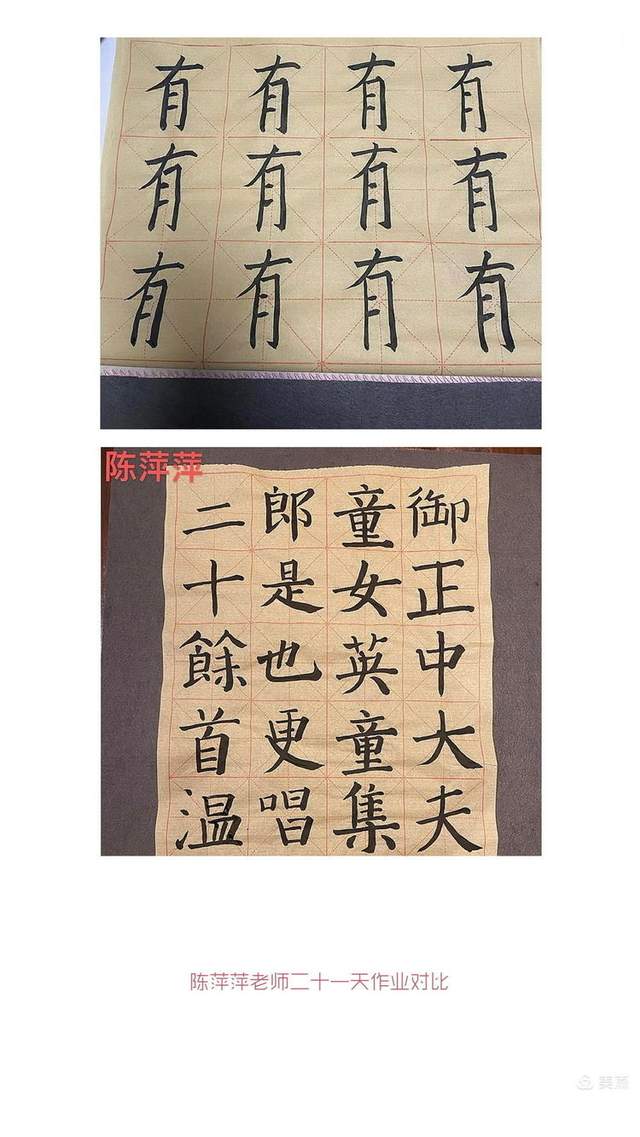 有有有有
有有有有
有有有有
陈萍萍
御正中大夫
童女英童集
郎是也更唱
二十餘首温
陈萍萍老师二十一天作业对比
美篇